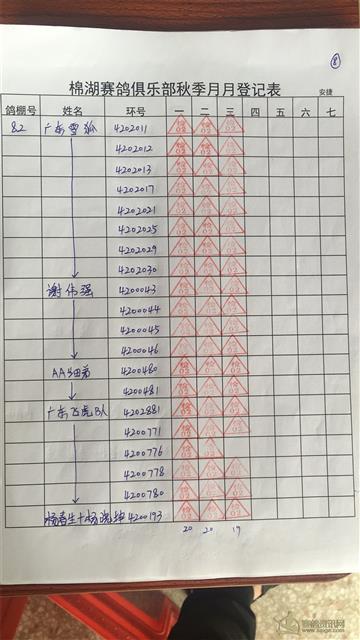 ⑧
棉湖赛鸽俱乐部秋季月月登记表 安捷
鸽棚号 姓名 环号 一 二 三 四 五 六 七
82 广东雪狐 4202011
4202012
4202013
4202017
4202021
4202025
4202029
4202030
谢伟强 4200043
4200044
4200045
4200046
AA细弟 4200480
4200481
广东飞虎队 4202881
4200771
4200776
4200778
4200780
杨春生+杨晓坤 4200193
20 20 19
赛鸽资讯网
www.saige.com